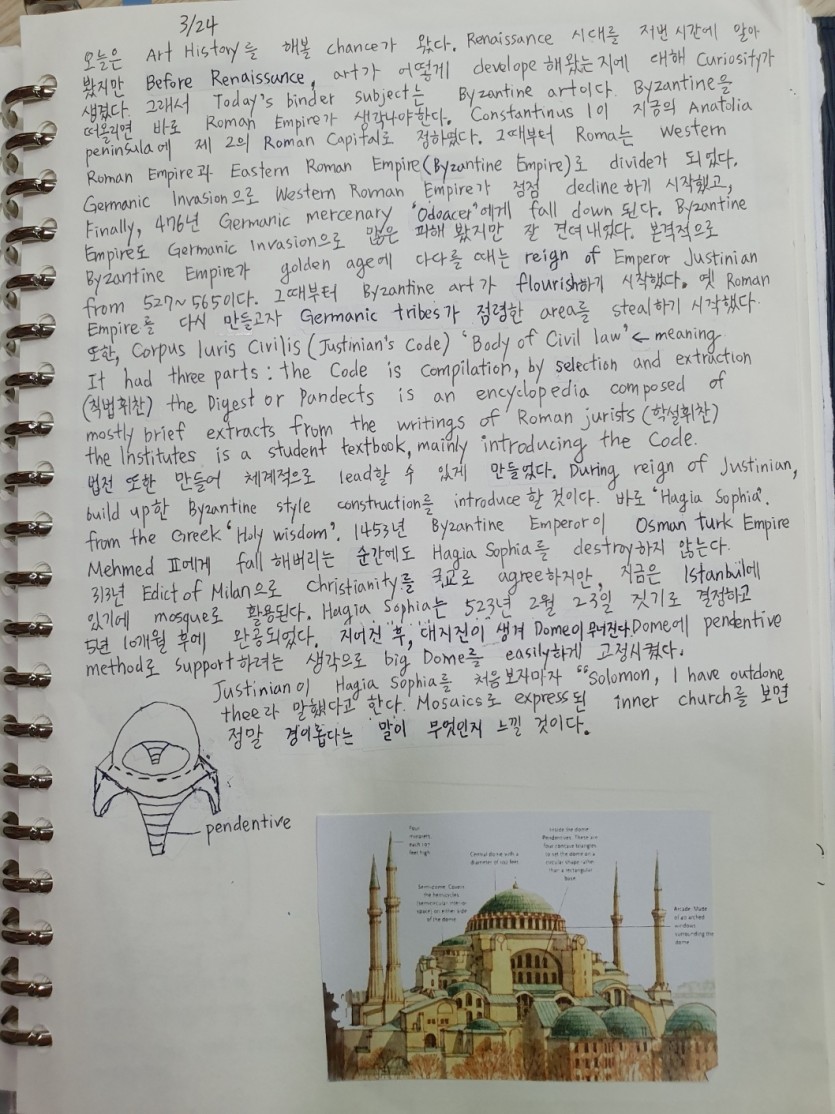 3/24
오늘은 Art History를 해볼 chance가 왔다. Renaissance 시대를 저번 시간에 알아
봤지만 Before Renaissance, art가 어떻게 develope 해왔는지에 대해 Curiosity가
생겼다. 그래서 Today's binder subject는 Byzantine art이다. Byzantine을
떠올리면 바로 Roman Empire가 생각나야한다. Constantinus 1이 지금의 Anatolia
peninsula에 제 2의 Roman Capital로 정하였다. 그때부터 Roma는 Western
Roman Empire과 Eastern Roman Empire(Byzantine Empire)로 divide가 되었다.
Germanic Invasion으로 Western Roman Empire가 점점 decline 하기 시작했고,
Finally, 476년 Germanic mercenary 'Odoacer'에게 fall down 된다. Byzantine
Empire도 Germanic Invasion으로 많은 피해 봤지만 잘 견뎌내었다. 본격적으로
Byzantine Empire가 golden age에 다다를 때는 reign of Emperor Justinian
from 527~565이다. 그때부터 Byzantine art가 flourish하기 시작했다. 옛 Roman
Empire를 다시 만들고자 Germanic tribes가 점령한 area를 steal하기 시작했다.
또한, Corpus Iuris Civilis (Justinian's Code) 'Body of Civil law' ← meaning
It had three parts : the Code is compilation, by selection and extraction
(칙법휘찬) the Digest or Pandects is an encyclopedia composed of
mostly brief extracts from the writings of Roman jurists (학설휘찬)
the Institutes is a student textbook, mainly introducing the Code.
법전 또한 만들어 체계적으로 lead할 수 있게 만들었다. During reign of Justinian,
build up한 Byzantine style construction를 introduce 할 것이다. 바로 'Hagia Sophia'.
from the Greek 'Holy wisdom'. 1453년 Byzantine Emperor이 Osman turk Empire
Mehmed II에게 fall 해버리는 순간에도 Hagia Sophia를 destroy하지 않는다.
313년 Edict of Milan으로 Christianity를 국교로 agree하지만, 지금은 Istanbul에
있기에 mosque로 활용된다. Hagia Sophia는 523년 2월 23일 짓기로 결정하고
5년 10개월 후에 완공되었다. 지어진 후, 대지진이 생겨 Dome이 무너진다. Dome에 pendentive
method로 support하려는 생각으로 big Dome를 easily하게 고정시켰다.
Justinian이 Hagia Sophia를 처음 보자마자 "Solomon, I have outdone
thee라 말했다고 한다. Mosaics로 express된 inner church를 보면
정말 경이롭다는 말이 무엇인지 느낄 것이다.
pendentive
Four
minarets,
each
feet high.
Central dome with a
diameter of 100 feet
Inside the dome
Pendentives. These are
four concave triangles
to set the dome on a
circular shape rather
than a rectangular
base
Semi-dome. Covers
the hemicycles
(semicircular interior
space) on either side
of the dome
Arcade. Made
of an arched
windows
surrounding the
dome